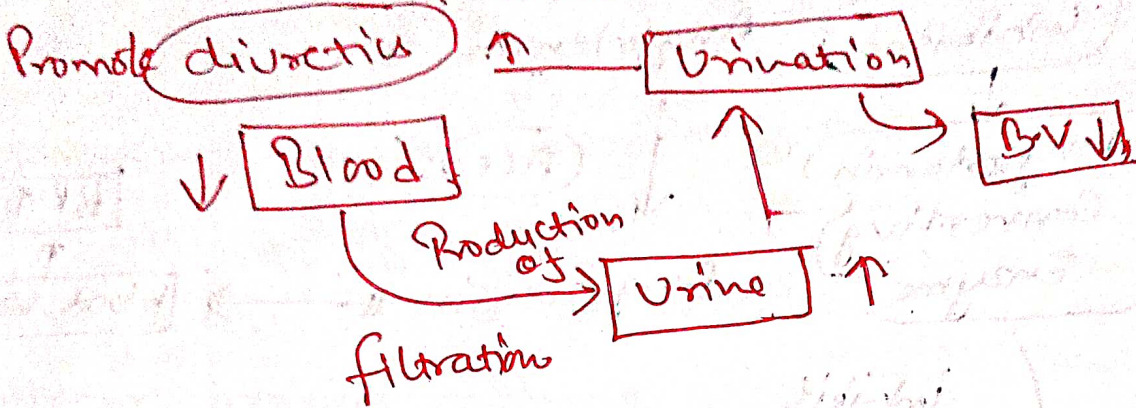 Promote diuretics ↑ Urination
↓ Blood
BV ↓
Production
of
Urine ↑
filtration